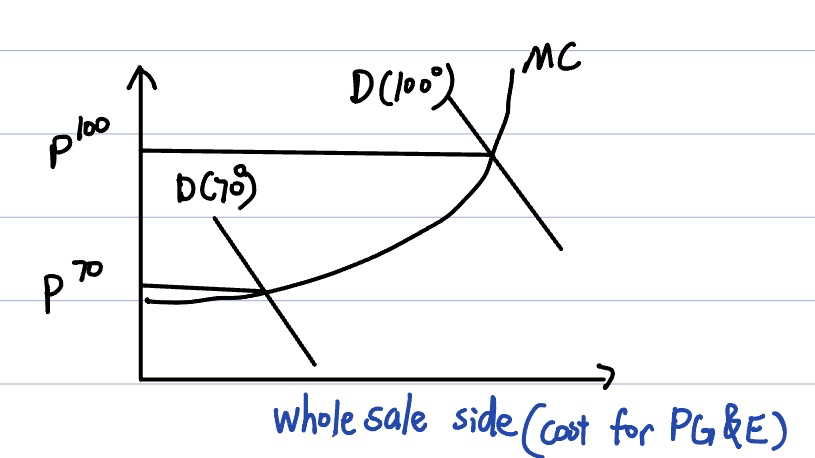 MC
D(100°)
P^100
D(70°)
P^70
whole sale side (cost for PG&E)